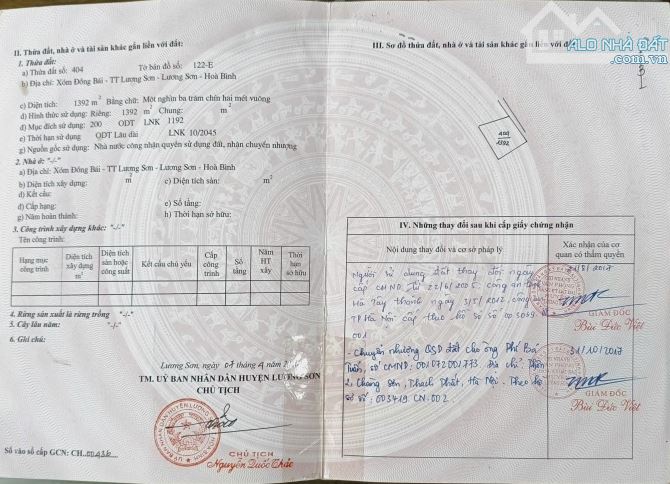 II. Thửa đất, nhà ở và tài sản khác gắn liền với đất:
1. Thửa đất:
a) Thửa đất số: 404 Tờ bản đồ số: 122-E
b) Địa chỉ: Xóm Đồng Bái - TT Lương Sơn - Lương Sơn - Hoà Bình
c) Diện tích: 1392 m² Bằng chữ: Một nghìn ba trăm chín hai mét vuông
d) Hình thức sử dụng: Riêng: 1392 m² Chung: m²
đ) Mục đích sử dụng: 200 ODT LNK 1192
e) Thời hạn sử dụng: ODT Lâu dài LNK 10/2045
g) Nguồn gốc sử dụng: Nhà nước công nhận quyền sử dụng đất, nhận chuyển nhượng
2. Nhà ở: "-/-"
a) Địa chỉ: Xóm Đồng Bái - TT Lương Sơn - Lương Sơn - Hoà Bình
b) Diện tích xây dựng: m² c) Diện tích sàn: m²
d) Kết cấu:
đ) Cấp hạng: e) Số tầng:
g) Năm hoàn thành: h) Thời hạn sở hữu:
3. Công trình xây dựng khác: "-/-"
Tên công trình:
Hạng mục công trình Diện tích xây dựng m² Diện tích sàn hoặc công suất Kết cấu chủ yếu Cấp công trình Số tầng Năm HT xây Thời hạn sở hữu
4. Rừng sản xuất là rừng trồng "-/-"
5. Cây lâu năm: "-/-"
6. Ghi chú:
Lương Sơn, ngày 07 tháng 4
TM. UỶ BAN NHÂN DÂN HUYỆN LƯƠNG SƠN
CHỦ TỊCH
CHỦ TỊCH
Nguyễn Quốc Thắc
Số vào sổ cấp GCN: CH 00436
III. Sơ đồ thửa đất, nhà ở và tài sản khác gắn liền với đất
ALO NHÀ ĐẤT
.com.vn
B
404
1392
IV. Những thay đổi sau khi cấp giấy chứng nhận
Nội dung thay đổi và cơ sở pháp lý
Xác nhận của cơ quan có thẩm quyền
Người sử dụng đất thay đổi ngày
cấp CMND từ 22/6/2005, công an tỉnh
Hà Tây thành ngày 3/5/2012, công an
TP Hà Nội cấp theo hồ sơ số
001
/8/2017
GIÁM ĐỐC
Bùi Đức Việt
- Chuyển nhượng QSD đất cho ông Phí Bá
Tuấn, số CMND: 001072001773, địa chỉ: Thôn
2, Chàng Sơn, Thạch Thất, Hà Nội. Theo hồ
sơ số: 003419.CN.002.
31/10/2017
GIÁM ĐỐC
Bùi Đức Việt